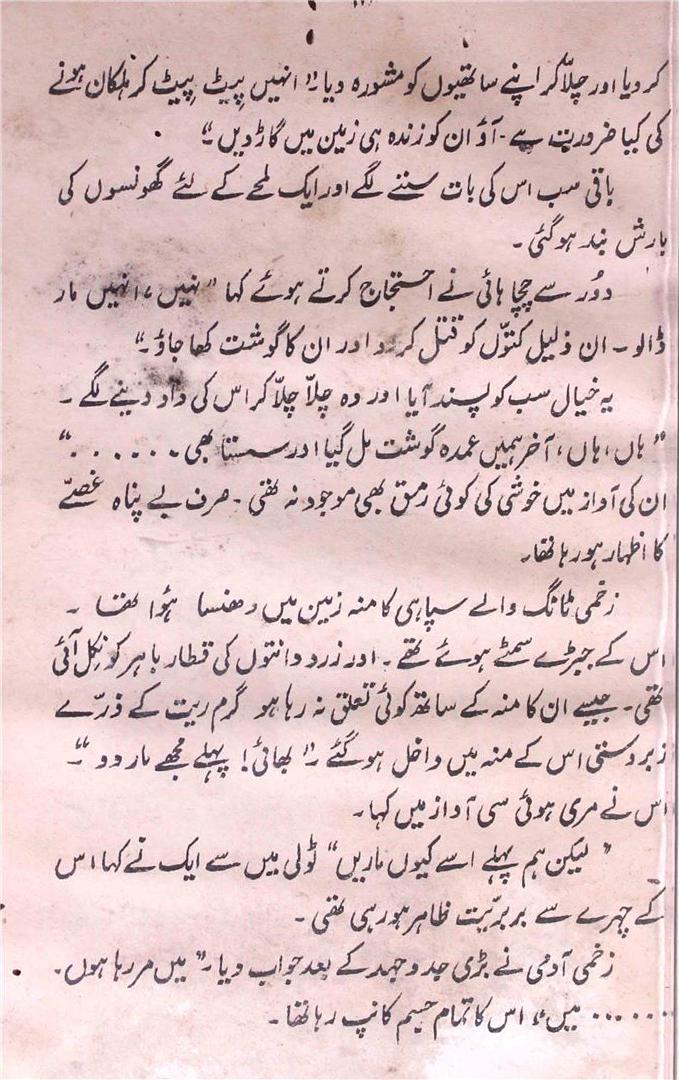 کر دیا اور چلّا کر اپنے ساتھیوں کو مشورہ دیا۔" انہیں پیٹ پیٹ کر ہلکان ہونے
کی کیا ضرورت ہے۔ آؤ ان کو زندہ ہی زمین میں گاڑ دیں۔"
باقی سب اس کی بات سننے لگے اور ایک لمحے کے لئے گھونسوں کی
بارش بند ہو گئی۔
دُور سے چچا ہائی نے احتجاج کرتے ہوئے کہا "نہیں، انہیں مار
ڈالو۔ ان ذلیل کتوّں کو قتل کر دو اور ان کا گوشت کھا جاؤ۔"
یہ خیال سب کو پسند آیا اور وہ چلاّ چلاّ کر اس کی داد دینے لگے۔
"ہاں، ہاں، آخر ہمیں عمدہ گوشت مل گیا اور سستا بھی۔۔۔۔۔۔"
ان کی آواز میں خوشی کی کوئی رمق بھی موجود نہ تھی۔ صرف بے پناہ غصّے
کا اظہار ہو رہا تھا۔
زخمی ٹانگ والے سپاہی کا منہ زمین میں دھنسا ہؤا تھا۔
اس کے جبڑے سمٹے ہوئے تھے۔ اور زرد دانتوں کی قطار باہر کو نکل آئی
تھی۔ جیسے ان کا منہ کے ساتھ کوئی تعلق نہ رہا ہو گرم ریت کے ذرّے
زبردستی اس کے منہ میں داخل ہو گئے۔" بھائی! پہلے مجھے مار دو"۔
اس نے مری ہوئی سی آواز میں کہا۔
"لیکن ہم پہلے اسے کیوں ماریں" ٹولی میں سے ایک نے کہا اس
کے چہرے سے بربریّت ظاہر ہو رہی تھی۔
زخمی آدمی نے بڑی جدوجہد کے بعد جواب دیا۔" میں مر رہا ہوں۔
۔۔۔۔۔۔ میں" اس کا تمام جسم کانپ رہا تھا۔